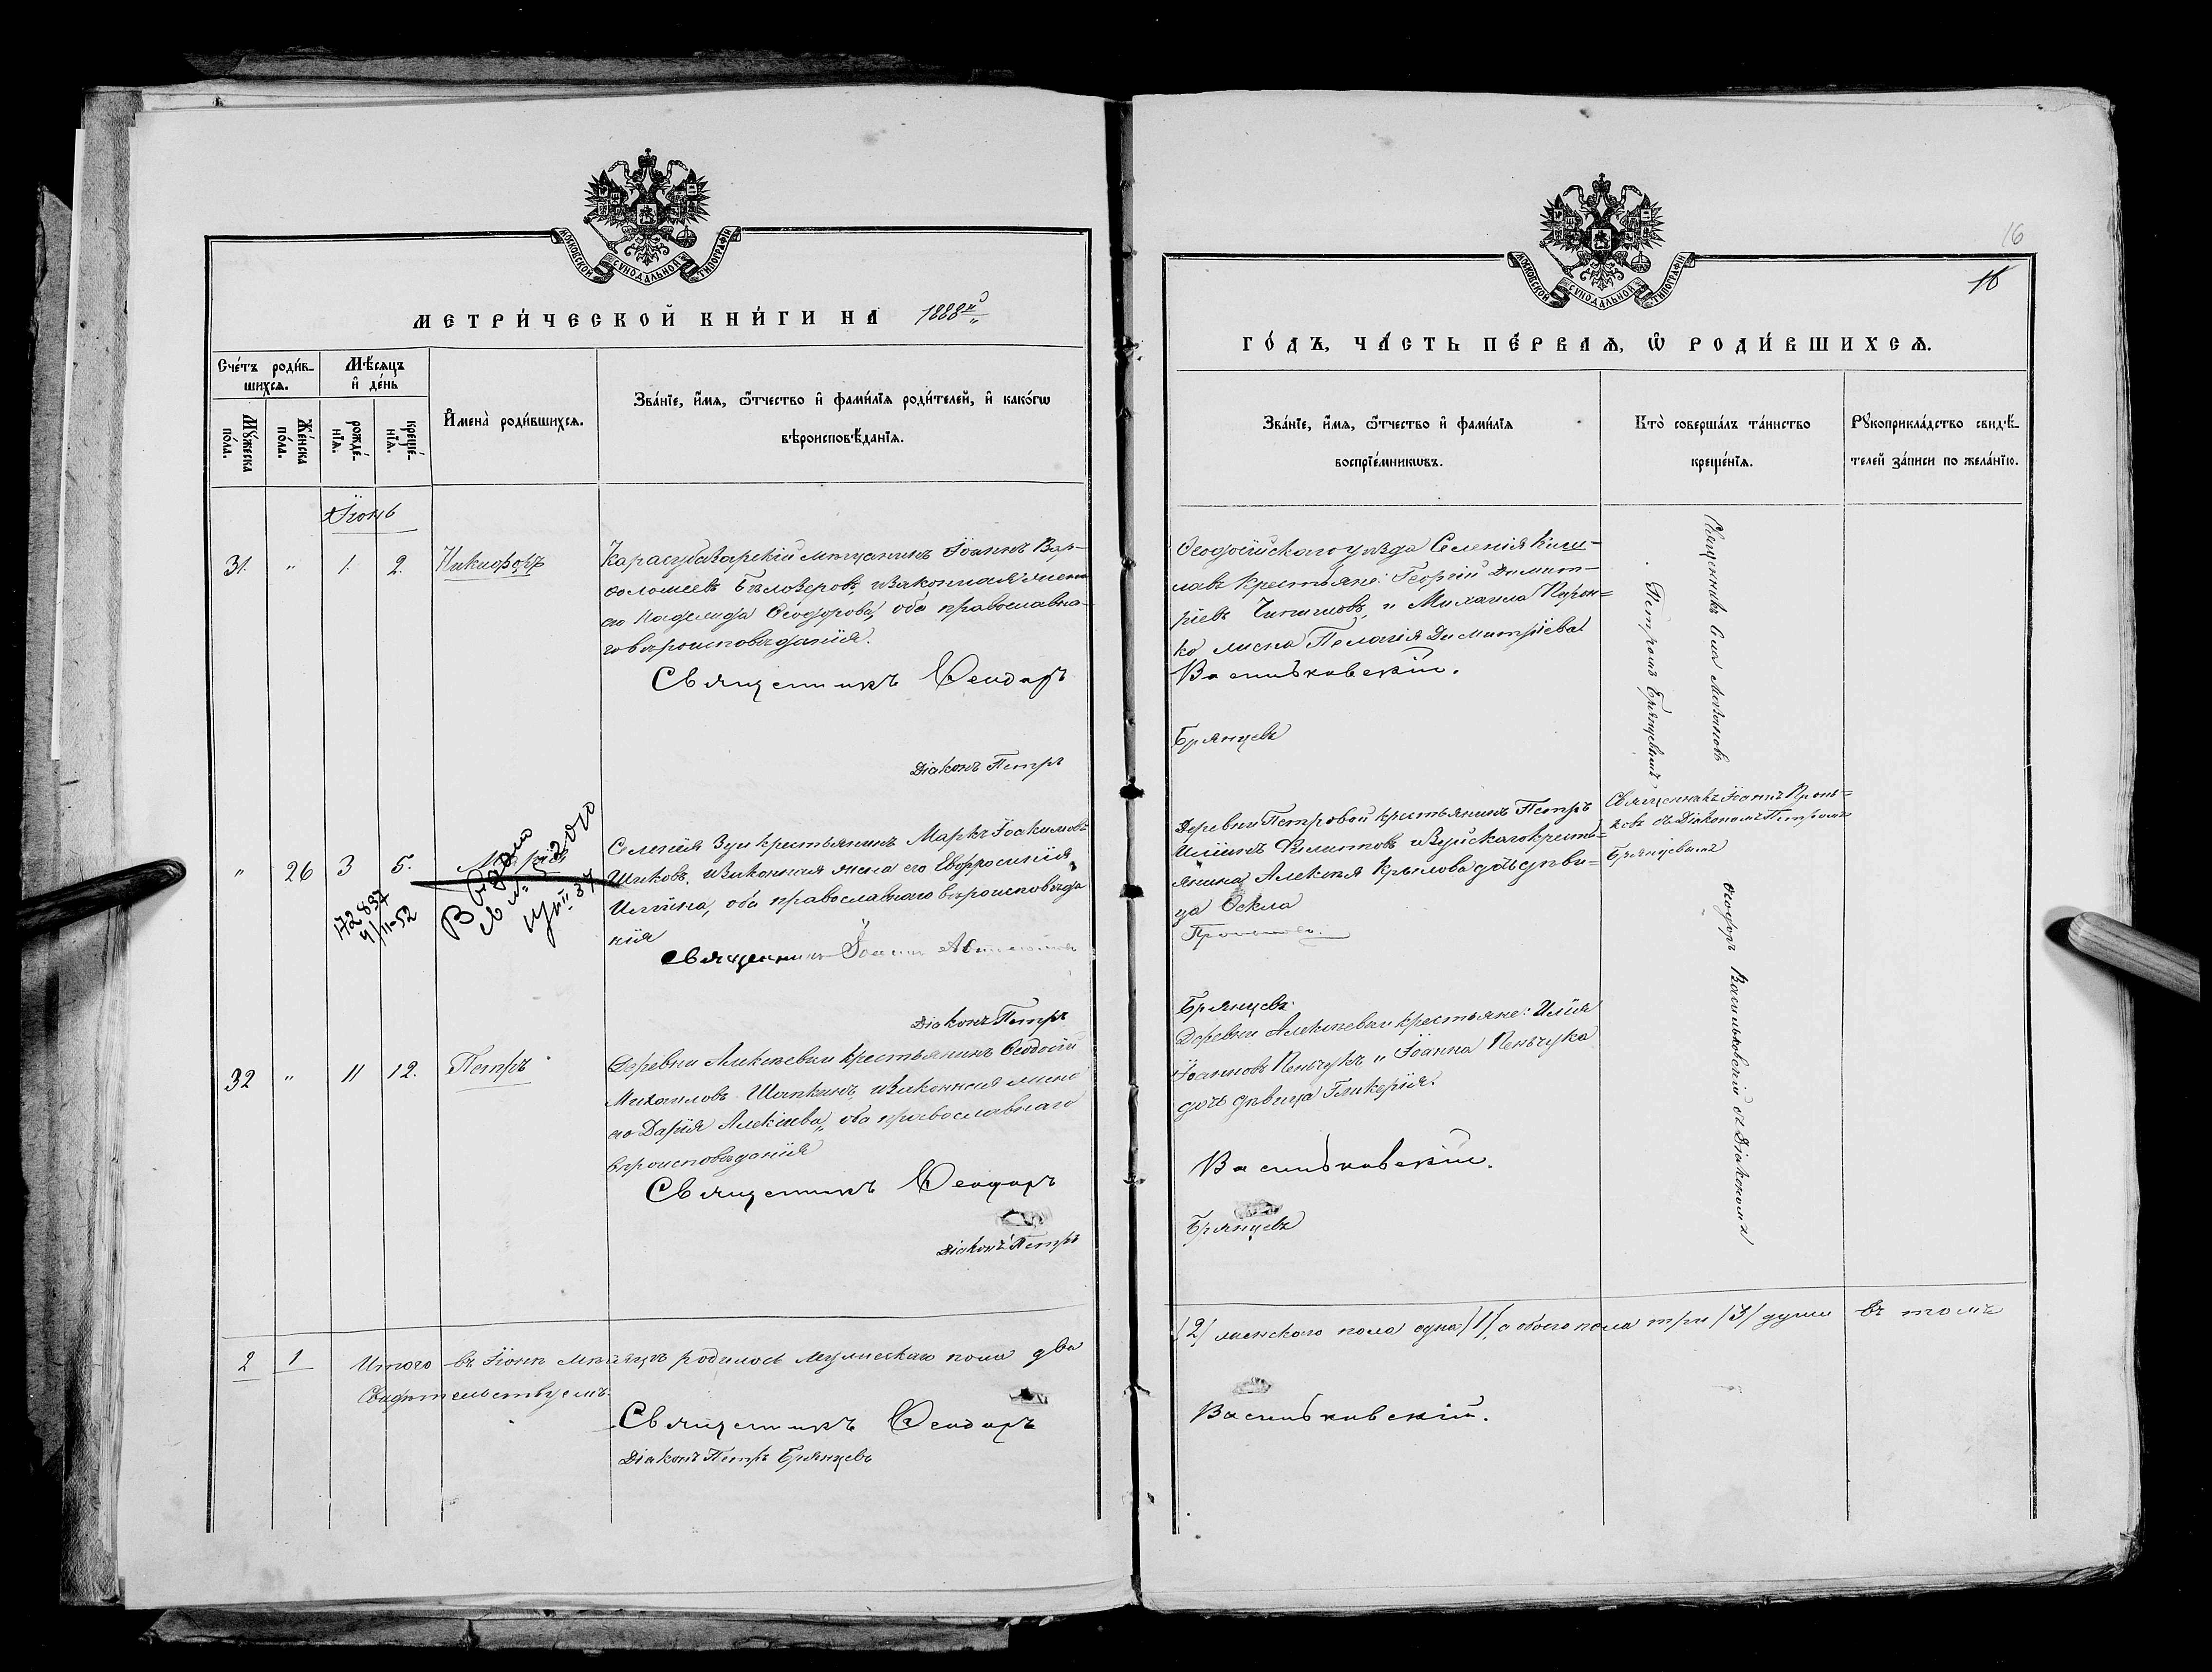 МОСКОВСКОЙ СУНОДАЛЬНОЙ ТИПОГРАФІИ
МЕТРИ́ЧЕСКОЙ КНИ́ГИ НА 1888й
Сче́тъ роди́в-
шихсѧ.
Мѣ́сѧцъ
и҆ де́нь
Мꙋ́жеска
по́ла.
Же́нска
по́ла.
рожде́-
нїѧ.
креще́-
нїѧ.
И҆мена̀ роди́вшихсѧ.
Зва́нїе, и҆́мѧ, ѻ҆́тчество и҆ фами́лїѧ роди́телей, и҆ како́гѡ
вѣроисповѣ́данїѧ.
Іюнь
31. " 1. 2. Никифоръ
Карасубазарскій мѣщанинъ Іоаннъ Вар-
ѳоломеевъ Бѣлозеровъ, и законная жена
его Надежда Ѳеодорова, оба православна-
го вѣроисповѣданія.
Священникъ Ѳеодоръ
Діаконъ Петръ
" 26 3 5.
172837
4/II-52
Селенія Зуи крестьянинъ Маркъ Іоакимовъ
и законная жена его Евфросинія
Иліина, оба православнаго вѣроисповѣда
нія
Священникъ Іоаннъ
Діаконъ Петръ
32 " 11 12. Петръ
Деревни Алексѣевки крестьянинъ Ѳеодосій
Михаиловъ Шапкинъ, и законная жена
его Дарія Алексіева, оба православнаго
вѣроисповѣданія
Священникъ Ѳеодоръ
Діаконъ Петръ
2 1 Итого въ Іюнѣ мѣсяцѣ родилось мужескаго пола два
Свидѣтельствуемъ:
Священникъ Ѳеодоръ
Діаконъ Петръ Брянцевъ
16
МОСКОВСКОЙ СУНОДАЛЬНОЙ ТИПОГРАФІИ
16
ГО́ДЪ, ЧА́СТЬ ПЕ́РВАѦ, Ѡ҆ РОДИ́ВШИХСѦ.
Зва́нїе, и҆́мѧ, ѻ҆́тчество и҆ фами́лїѧ
воспрїе́мникѡвъ.
Кто̀ соверша́лъ та́инство
креще́нїѧ.
Рꙋкоприкла́дство свидѣ́-
телей за́писи по жела́нїю.
Ѳеодосійскаго уѣзда Селенія Киш-
лавъ крестьяне: Георгій Димит-
ріевъ и Михаила
жена Пелагія Димитріева.
Васильковскій.
Брянцевъ
Священникъ
Ѳеодоръ Васильковскій съ Діакономъ
Петромъ Брянцевымъ
Деревни Петровой крестьянинъ Петръ
Иліинъ Филиповъ и Зуйскаго кресть-
янина Алексѣя Крылова дочь дѣви-
ца Ѳекла
Брянцевъ.
Священникъ Іоаннъ
съ Діакономъ Петромъ
Брянцевымъ
Деревни Алексѣевки крестьяне: Илія
Іоанновъ и Іоанна
дочь дѣвица Гликерія.
Васильковскій.
Брянцевъ
/2/ женскаго пола одна /1/, а обоего пола три /3/ души въ томъ
Васильковскій.